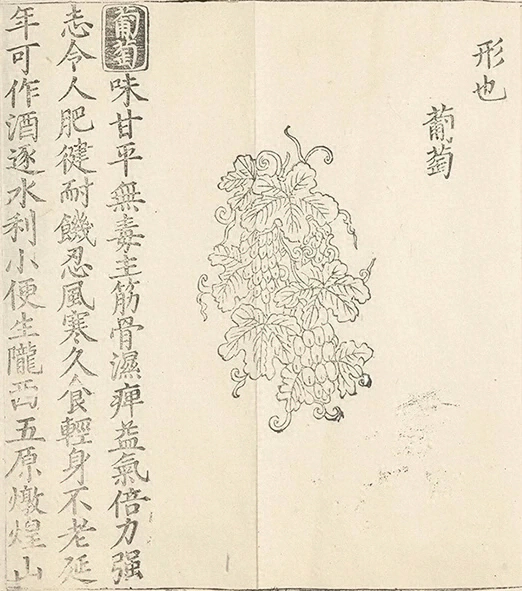 形也
葡萄
葡萄味甘平無毒主筋骨濕痺益氣倍力强
志令人肥徤耐饑忍風寒久食輕身不老延
年可作酒逐水利小便生隴西五原燉煌山